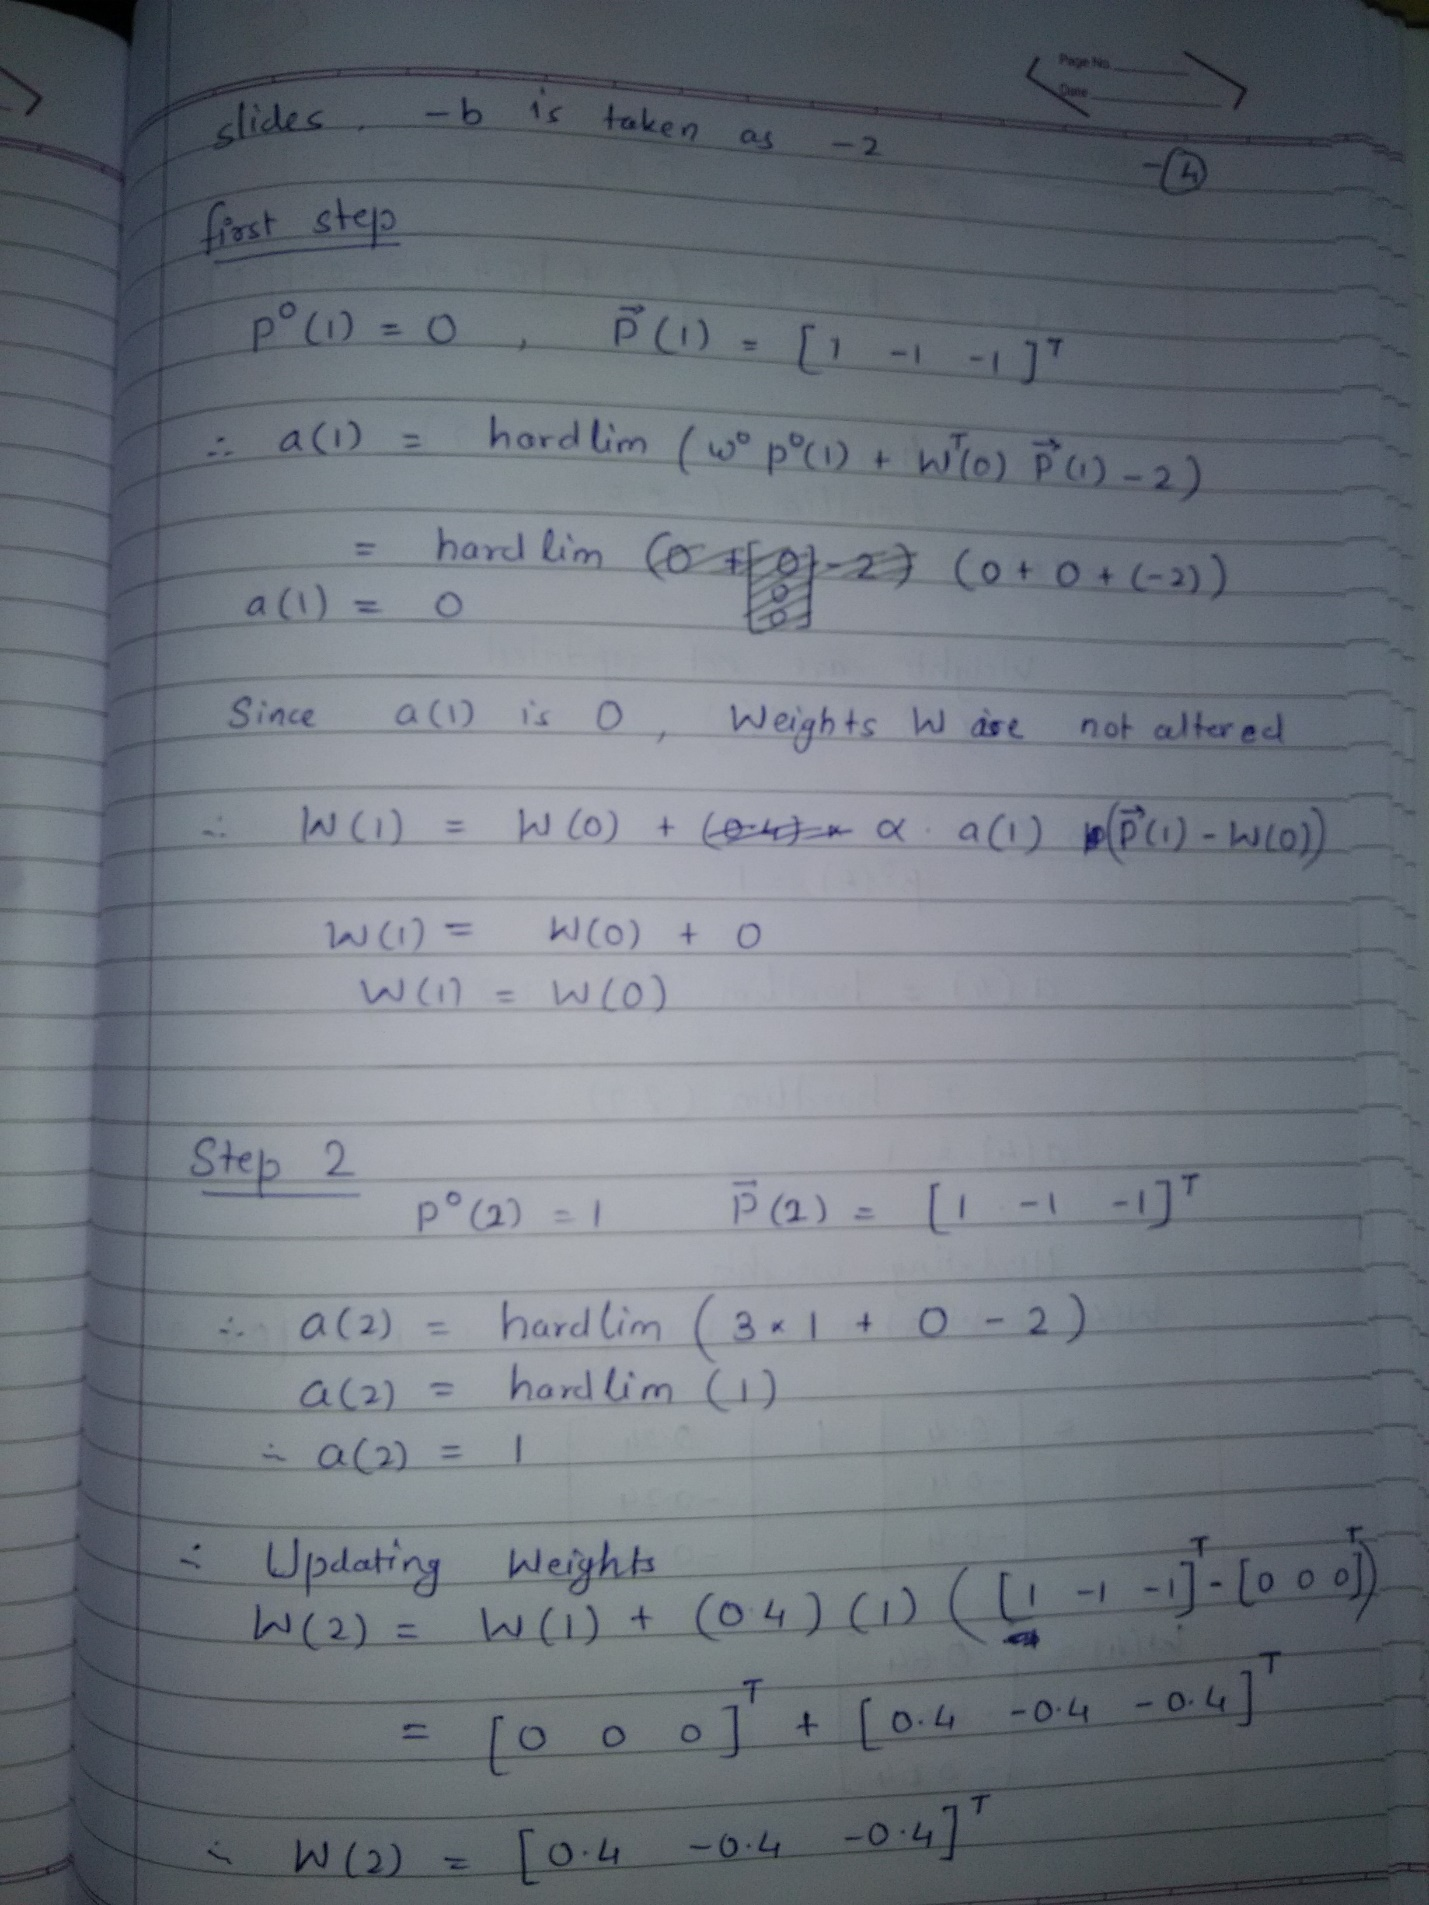 Page No.
Date
slides, -b is taken as -2
-④
first step
p⁰(1) = 0 , p⃗(1) = [1 -1 -1]ᵀ
∴ a(1) = hardlim (w⁰ p⁰(1) + Wᵀ(0) p⃗(1) - 2)
= hardlim (0 + 0 + (-2))
a(1) = 0
Since a(1) is 0, Weights W are not altered
∴ W(1) = W(0) + α . a(1) (p⃗(1) - W(0))
W(1) = W(0) + 0
W(1) = W(0)
Step 2
p⁰(2) = 1 p⃗(2) = [1 -1 -1]ᵀ
∴ a(2) = hardlim (3 × 1 + 0 - 2)
a(2) = hardlim (1)
∴ a(2) = 1
∴ Updating Weights
W(2) = W(1) + (0.4) (1) ([1 -1 -1]ᵀ - [0 0 0]ᵀ)
= [0 0 0]ᵀ + [0.4 -0.4 -0.4]ᵀ
∴ W(2) = [0.4 -0.4 -0.4]ᵀ